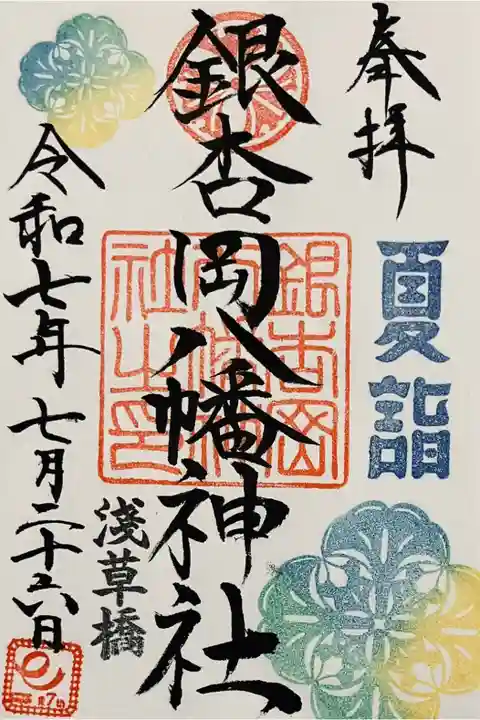 奉拝
夏詣
銀杏岡八幡神社
銀杏岡
八幡神
社之印
浅草橋
令和七年七月二十六日